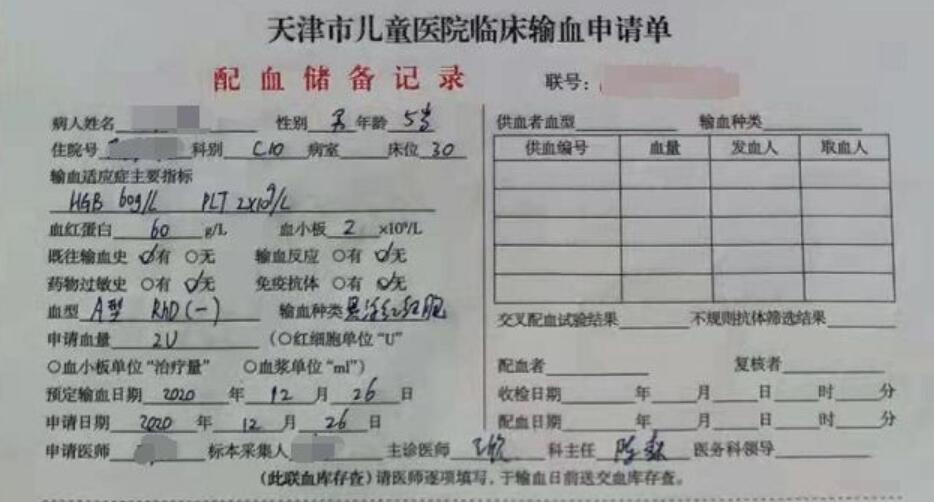 天津市儿童医院临床输血申请单
配血储备记录
联号：
病人姓名 性别 男 年龄 5岁
住院号 科别 C10 病室 床位 30
输血适应症主要指标
HGB 60g/L PLT 2×10⁹/L
血红蛋白 60 g/L 血小板 2 ×10⁹/L
既往输血史 ☑有 ○无 输血反应 ○有 ☑无
药物过敏史 ○有 ☑无 免疫抗体 ○有 ☑无
血型 A型 RhD(-) 输血种类 悬浮红细胞
申请血量 2U (○红细胞单位“U”
○血小板单位“治疗量” ○血浆单位“ml”)
预定输血日期 2020 年 12 月 26 日
申请日期 2020 年 12 月 26 日
申请医师 标本采集人 主诊医师 科主任 医务科领导
供血者血型 输血种类
供血编号 血量 发血人 取血人
交叉配血试验结果 不规则抗体筛选结果
配血者 复核者
收检日期 年 月 日 时 分
配血日期 年 月 日 时 分
(此联血库存查)请医师逐项填写，于输血日前送交血库存查。